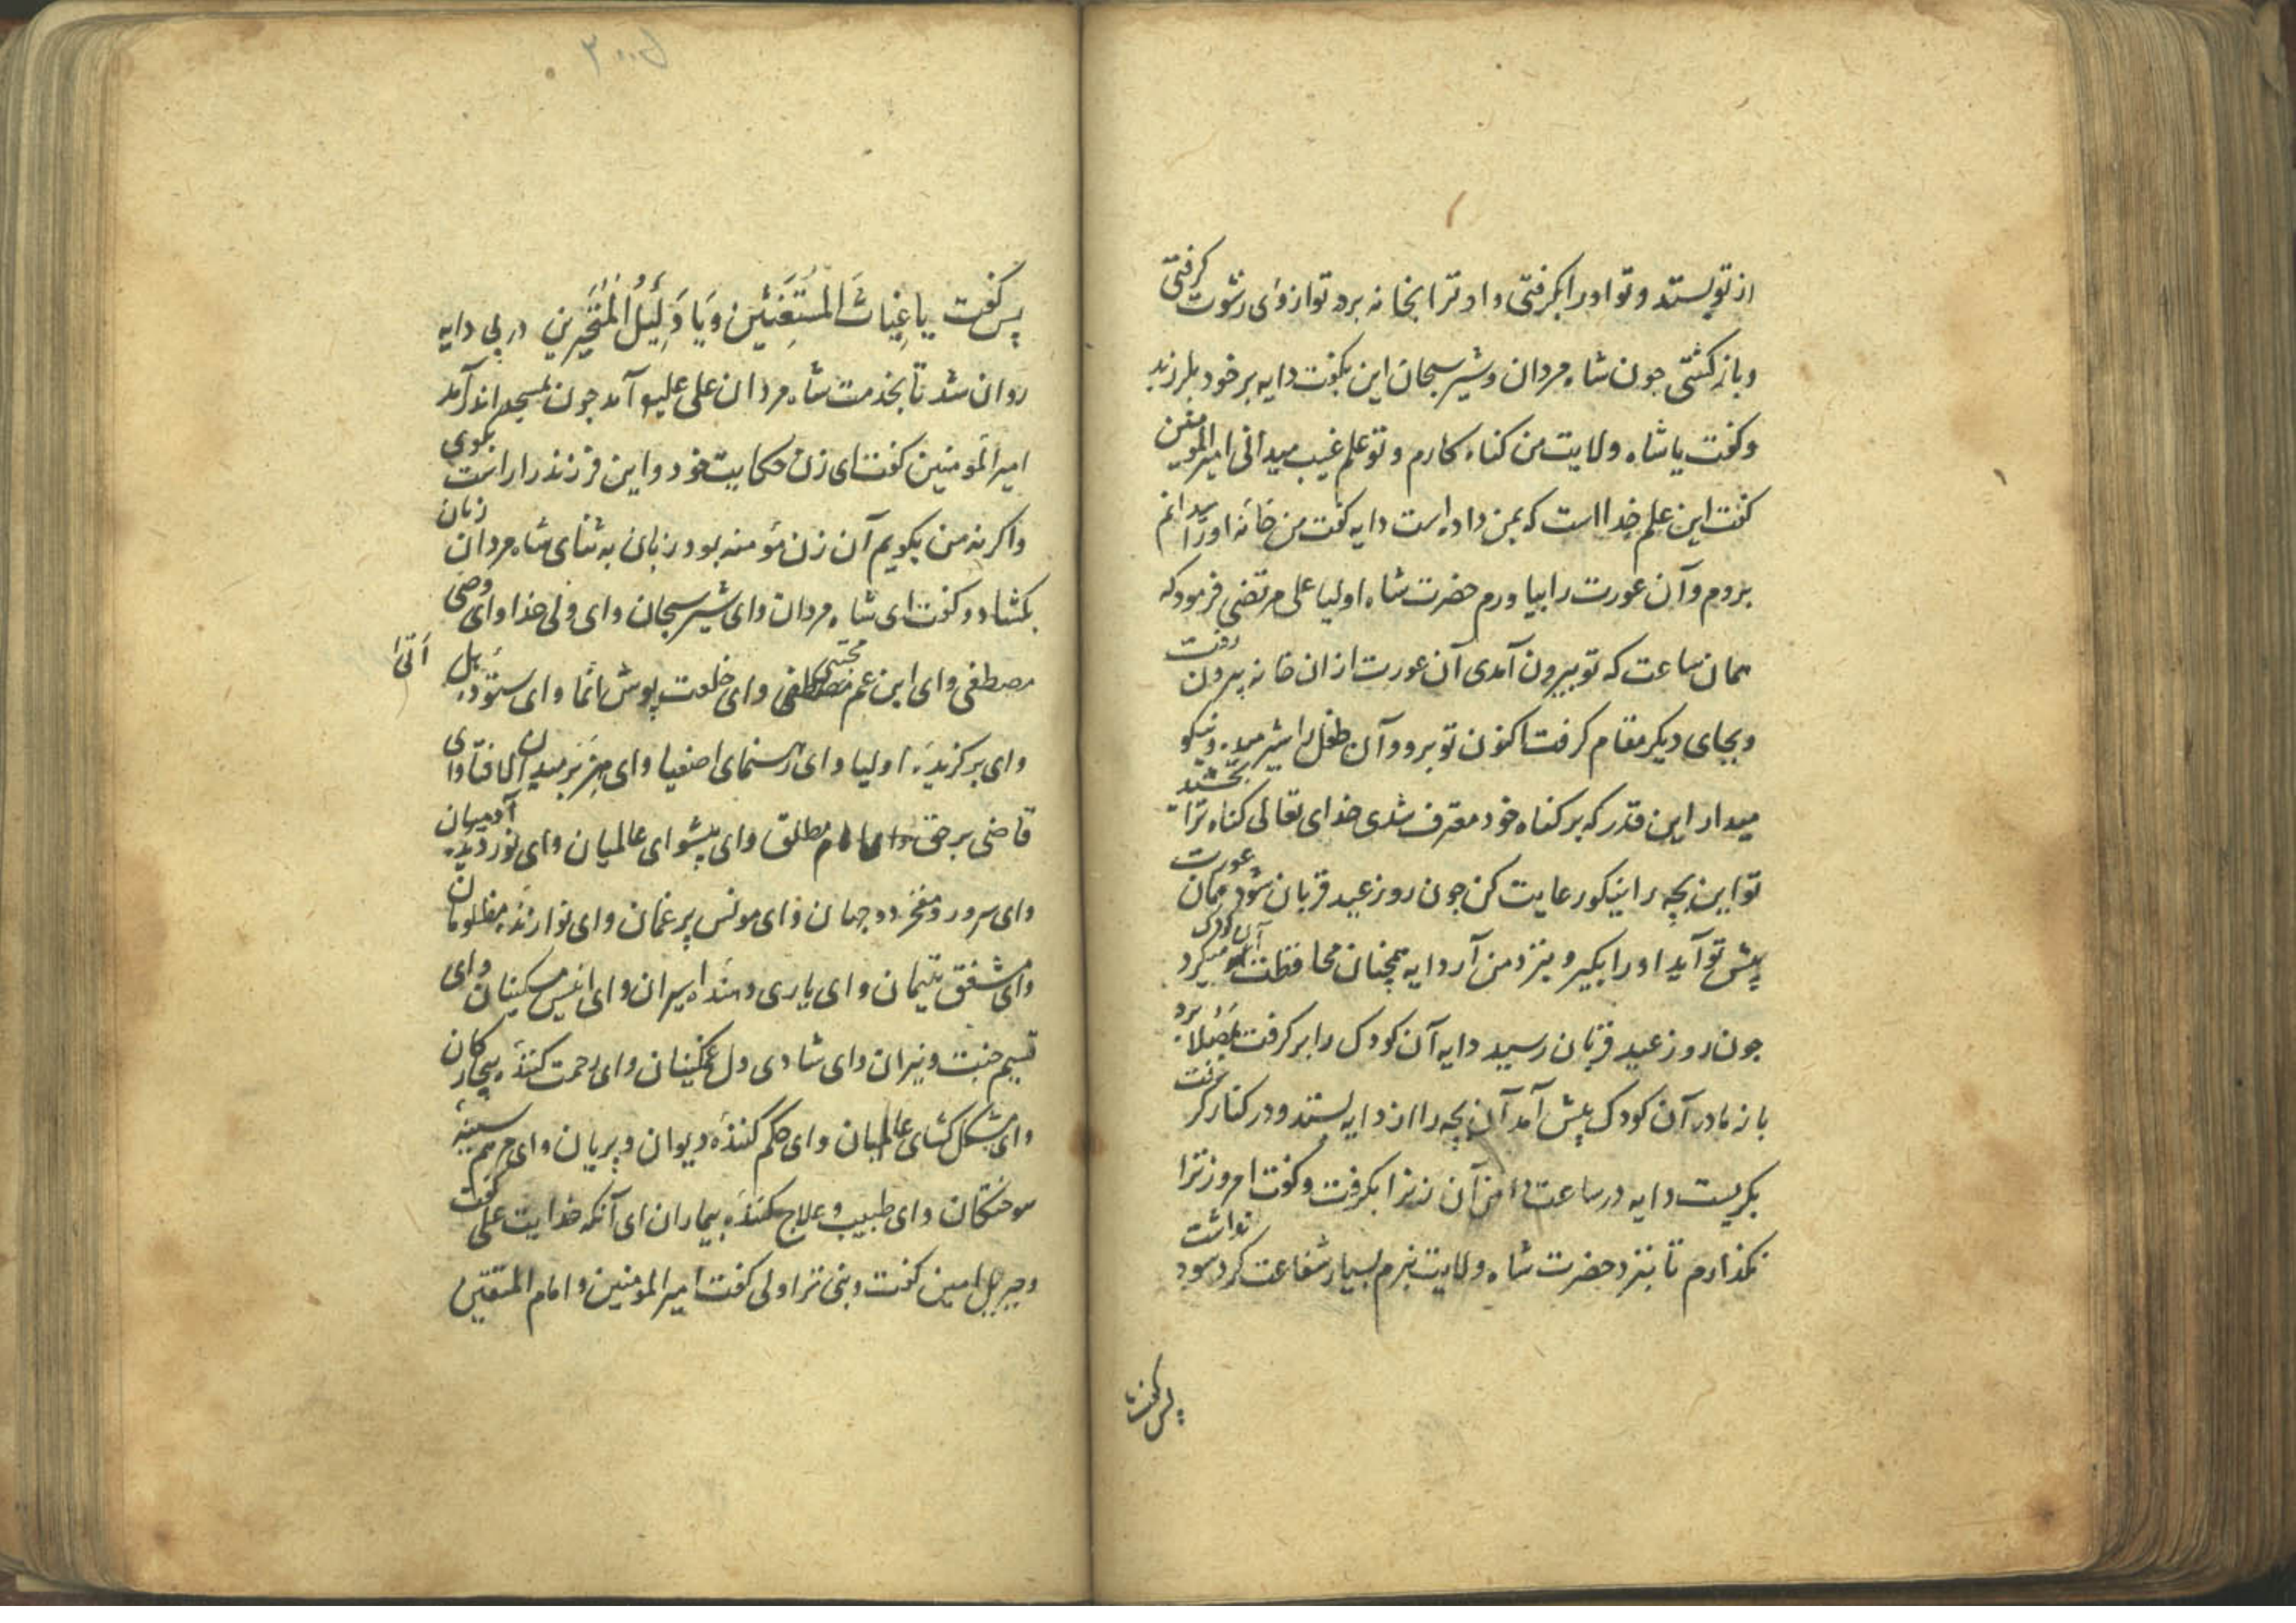 از تو بستد و تو او را بگرفتی و او ترا بخانه برد تو از وی رشوت گرفتی
و بازگشتی جون شاه مردان و شیر سبحان این بگفت دایه بر خود بلرزید
و گفت یا شاه ولایت من گناه کارم و تو علم غیب میدانی امیر المومنین
گفت این علم خدا است که بمن داده است دایه گفت من خانه او را میدانم
بروم و آن عورت را بیاورم حضرت شاه اولیا علی مرتضی فرمود که
همان ساعت که تو بیرون آمدی آن عورت از ان خانه بیرون رفت
و بجای دیگر مقام گرفت اکنون تو برو و آن طفل را شیر میده و نیکو
میدار این قدر که بر گناه خود معترف شدی خدای تعالی گناه ترا بخشید
تو این بچه را نیکو رعایت کن جون روز عید قربان شود همان عورت
پیش تو آید او را بگیر و بنزد من آر دایه همچنان محافظت آن کودک میکرد
جون روز عید قربان رسید دایه آن کودک را بر گرفت بمصلا برد
باز مادر آن کودک پیش آمد آن بچه را از دایه بستد و در کنار گرفت
بگریست دایه در ساعت دامن آن زن را بگرفت و گفت امروز ترا
نگذارم تا بنزد حضرت شاه ولایت نبرم بسیار شفاعت کرد سود نداشت
پس گفت
پس گفت یا غِیاثَ المُستَغیثین وَیَا دَلِیلُ المُتَحَیِّرین در پی دایه
روان شد تا بخدمت شاه مردان علی علیه آمد جون بمسجد اندر آمد
امیر المومنین گفت ای زن حکایت خود و این فرزند را راست بگوی
واگرنه من بگویم آن زن مؤمنه بود زبان به ثنای شاه مردان زنان
بگشاد و گفت ای شاه مردان و ای شیر سبحان و ای ولی خدا و ای وصی
مصطفی و ای ابن عم مجتبی و ای خلعت پوش انما و ای ستوده هل اتی
و ای برگزیده اولیا و ای رهنمای اصفیا و ای هِزَبر میدان لافتا و ای
قاضی بر حق و ای امام مطلق و ای پیشوای عالمیان و ای نور دیده آدمیان
و ای سرور و مفخر دو جهان و ای مونس پر غمان و ای نوازنده مظلومان
و ای مشفق یتیمان و ای یاری دهنده اسیران و ای انیس مسکینان و ای
قسیم جنت و نیران و ای شادی دل غمگینان و ای رحمت کننده بیچارگان
و ای مشکل کشای عالمیان و ای حکم کننده دیوان و پریان و ای مرهم سینه
سوختگان و ای طبیب و علاج کننده بیماران ای آنکه خدایت علی گفت
و جبریل امین گفت و نبی ترا ولی گفت امیر المومنین و امام المتقین